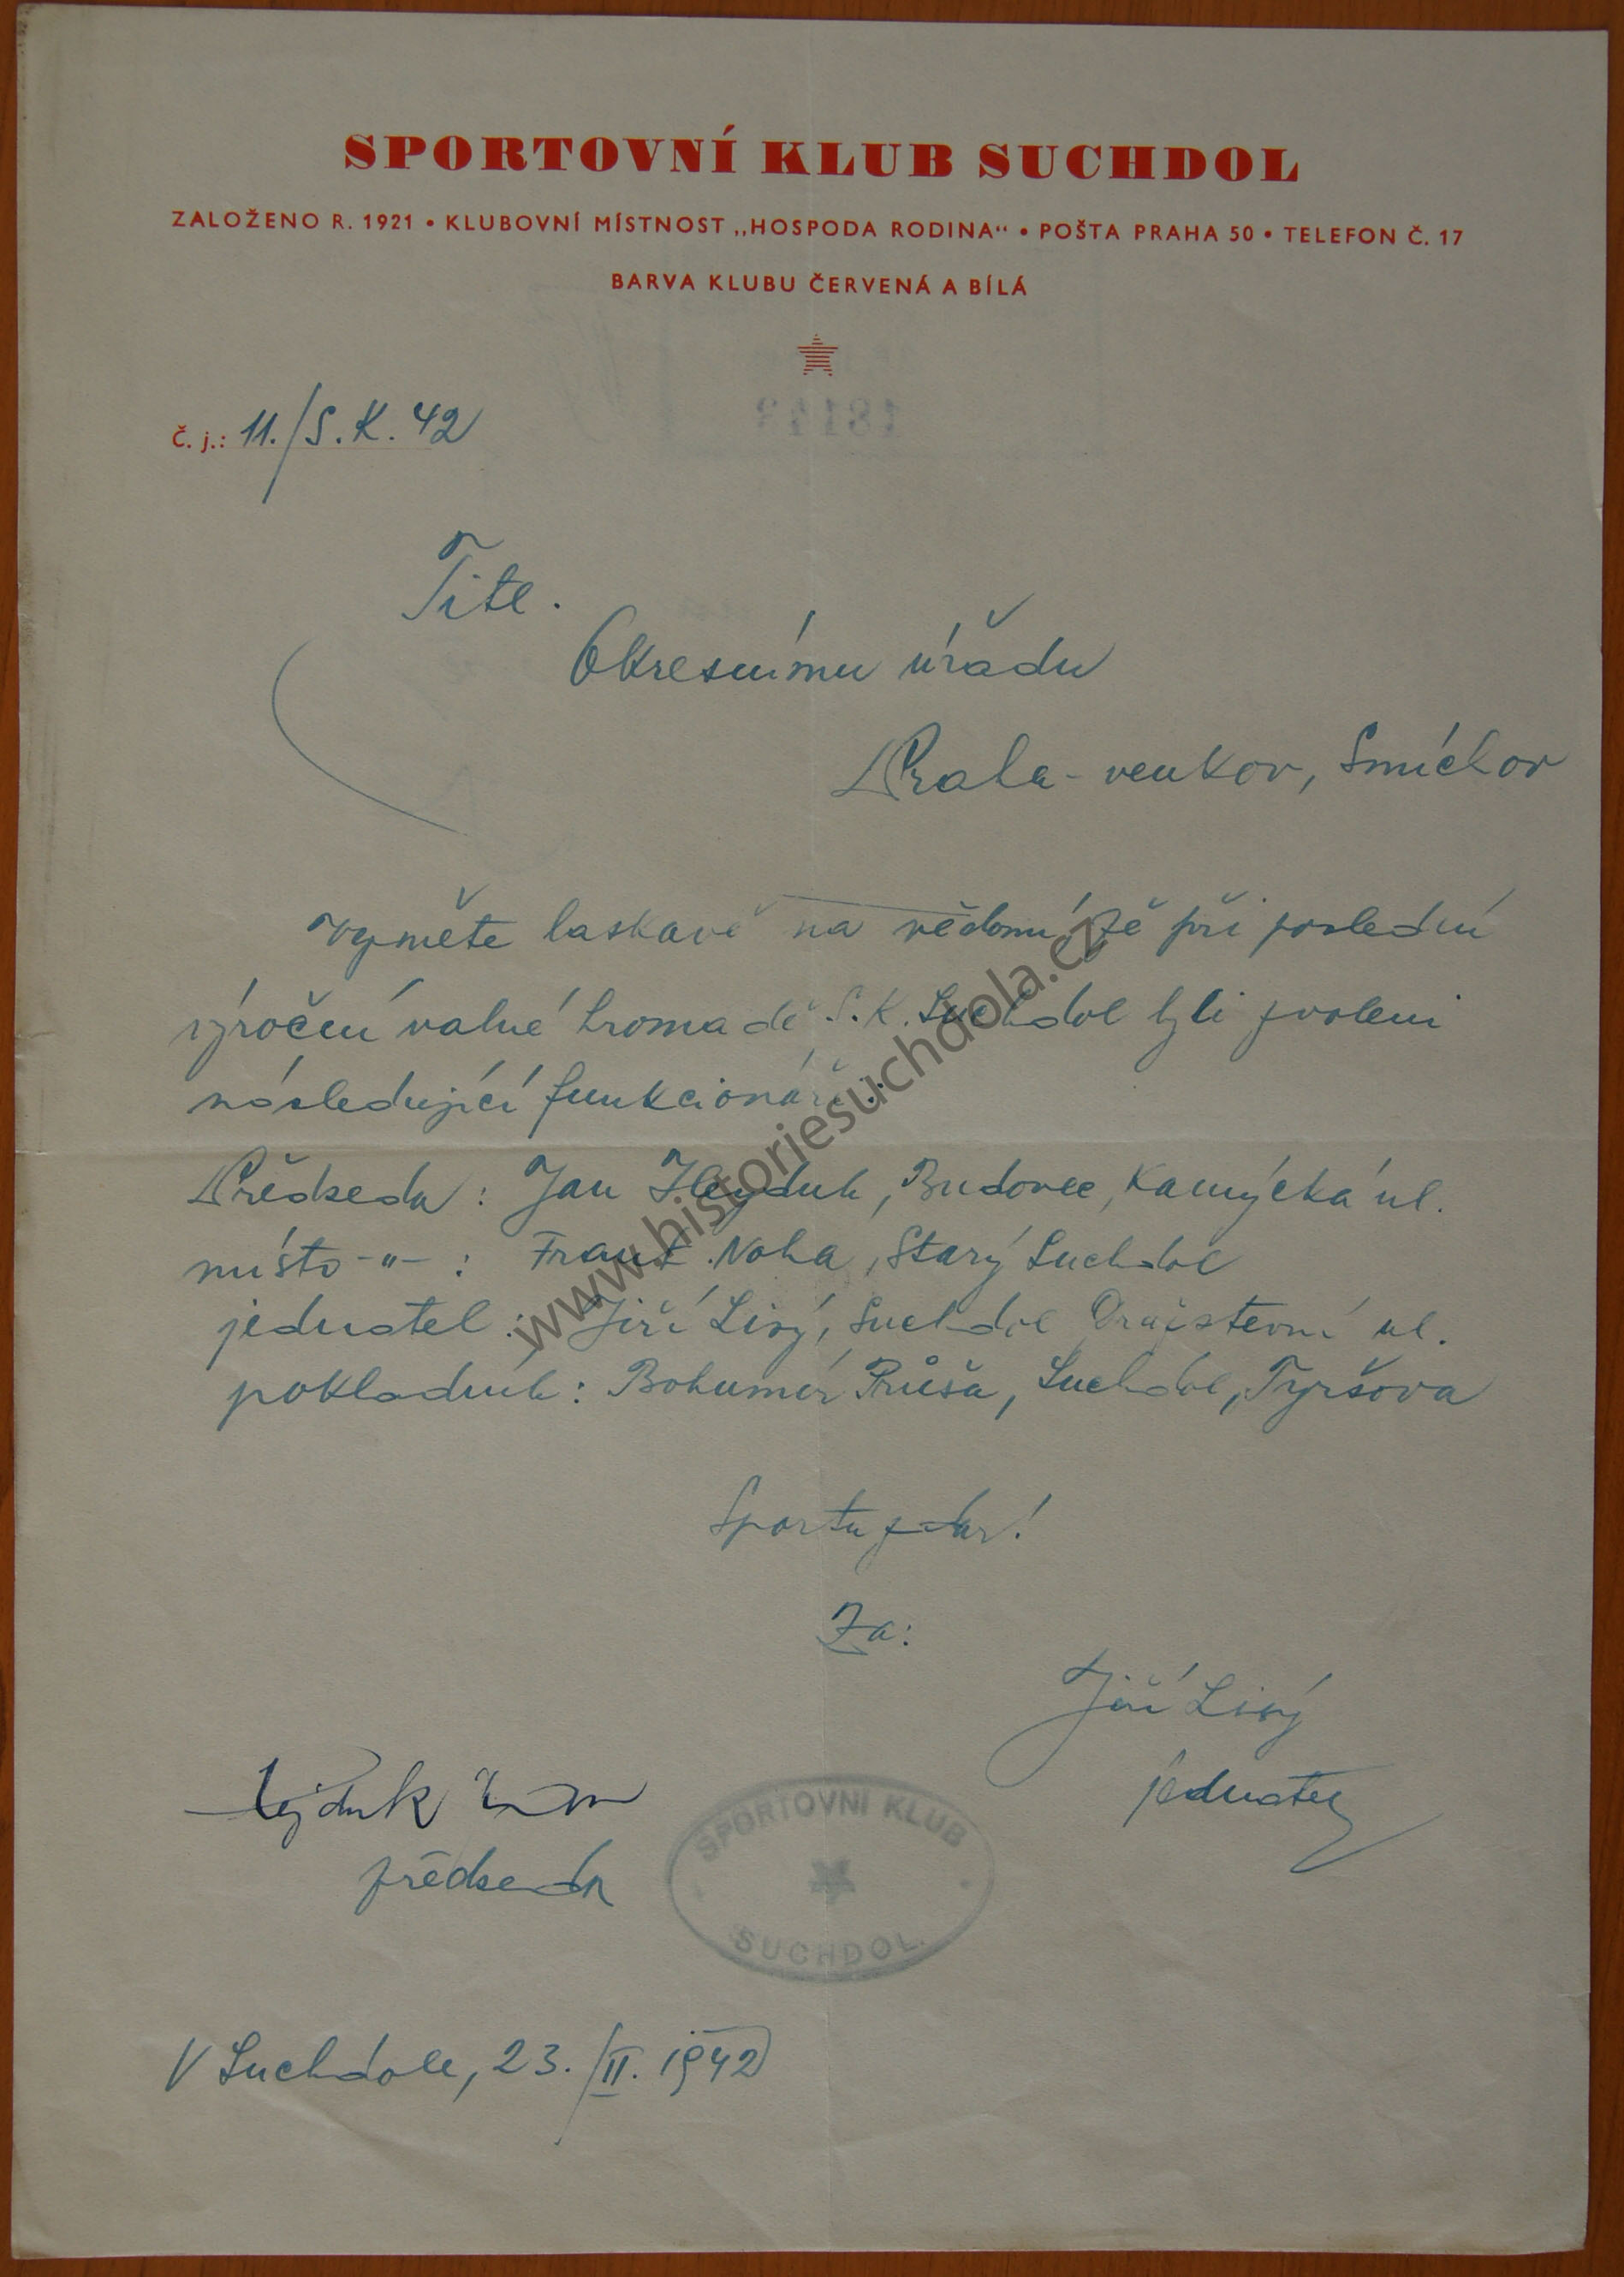 SPORTOVNÍ KLUB SUCHDOL
ZALOŽENO R. 1921 • KLUBOVNÍ MÍSTNOST „HOSPODA RODINA“ • POŠTA PRAHA 50 • TELEFON Č. 17
BARVA KLUBU ČERVENÁ A BÍLÁ
Č. j.: 11./S.K. 42
Titl.
Okresnímu úřadu
Praha-venkov, Smíchov
Vezměte laskavě na vědomí, že při poslední
výroční valné hromadě S.K. Suchdol byli zvoleni
následující funkcionáři:
Předseda: Jan Hejduk, Budovec, Kamýcká ul.
místo -"- : Frant. Noha, Starý Suchdol
jednatel: Jiří Livý, Suchdol Družstevní ul.
pokladník: Bohumír Průša, Suchdol, Tyršova
Sportu zdar!
Za:
Jiří Livý
jednatel
Hejduk Jan
předseda
SPORTOVNÍ KLUB
SUCHDOL.
V Suchdole, 23./II. 1942
www.historiesuchdola.cz